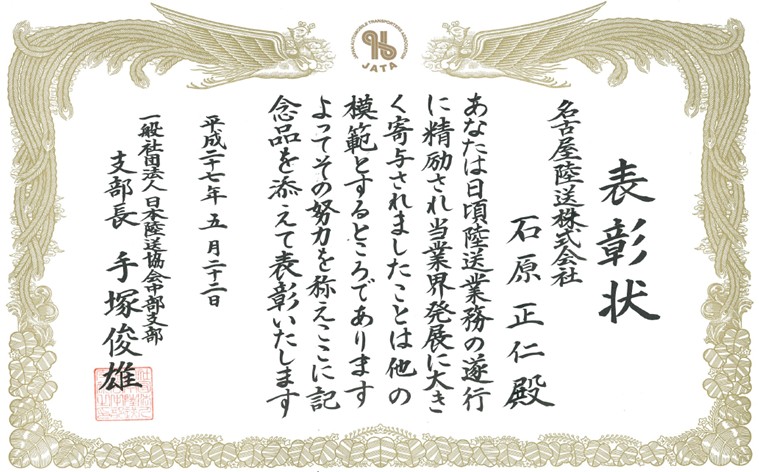 JATA
表彰状
名古屋陸送株式会社
石原正仁殿
あなたは日頃陸送業務の遂行
に精励され当業界発展に大き
く寄与されましたことは他の
模範とするところであります
よってその努力を称えここに記
念品を添えて表彰いたします
平成二十七年五月二十二日
一般社団法人日本陸送協会中部支部
支部長 手塚俊雄